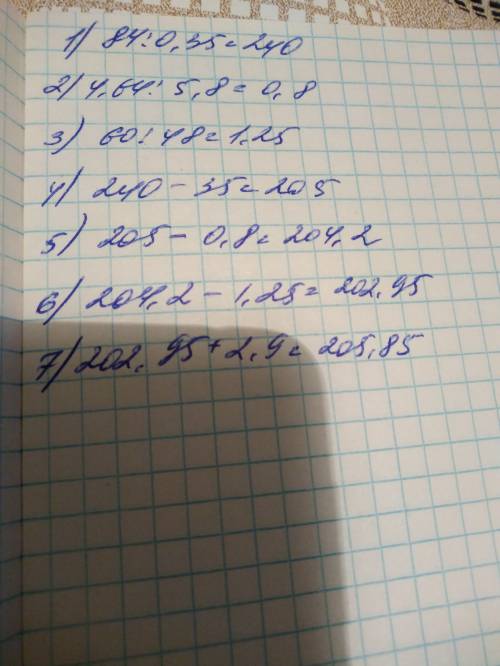 1) 84:0,35=240
2) 4,64:5,8=0,8
3) 60:48=1,25
4) 240-35=205
5) 205-0,8=204,2
6) 204,2-1,25=202,95
7) 202,95+2,9=205,85